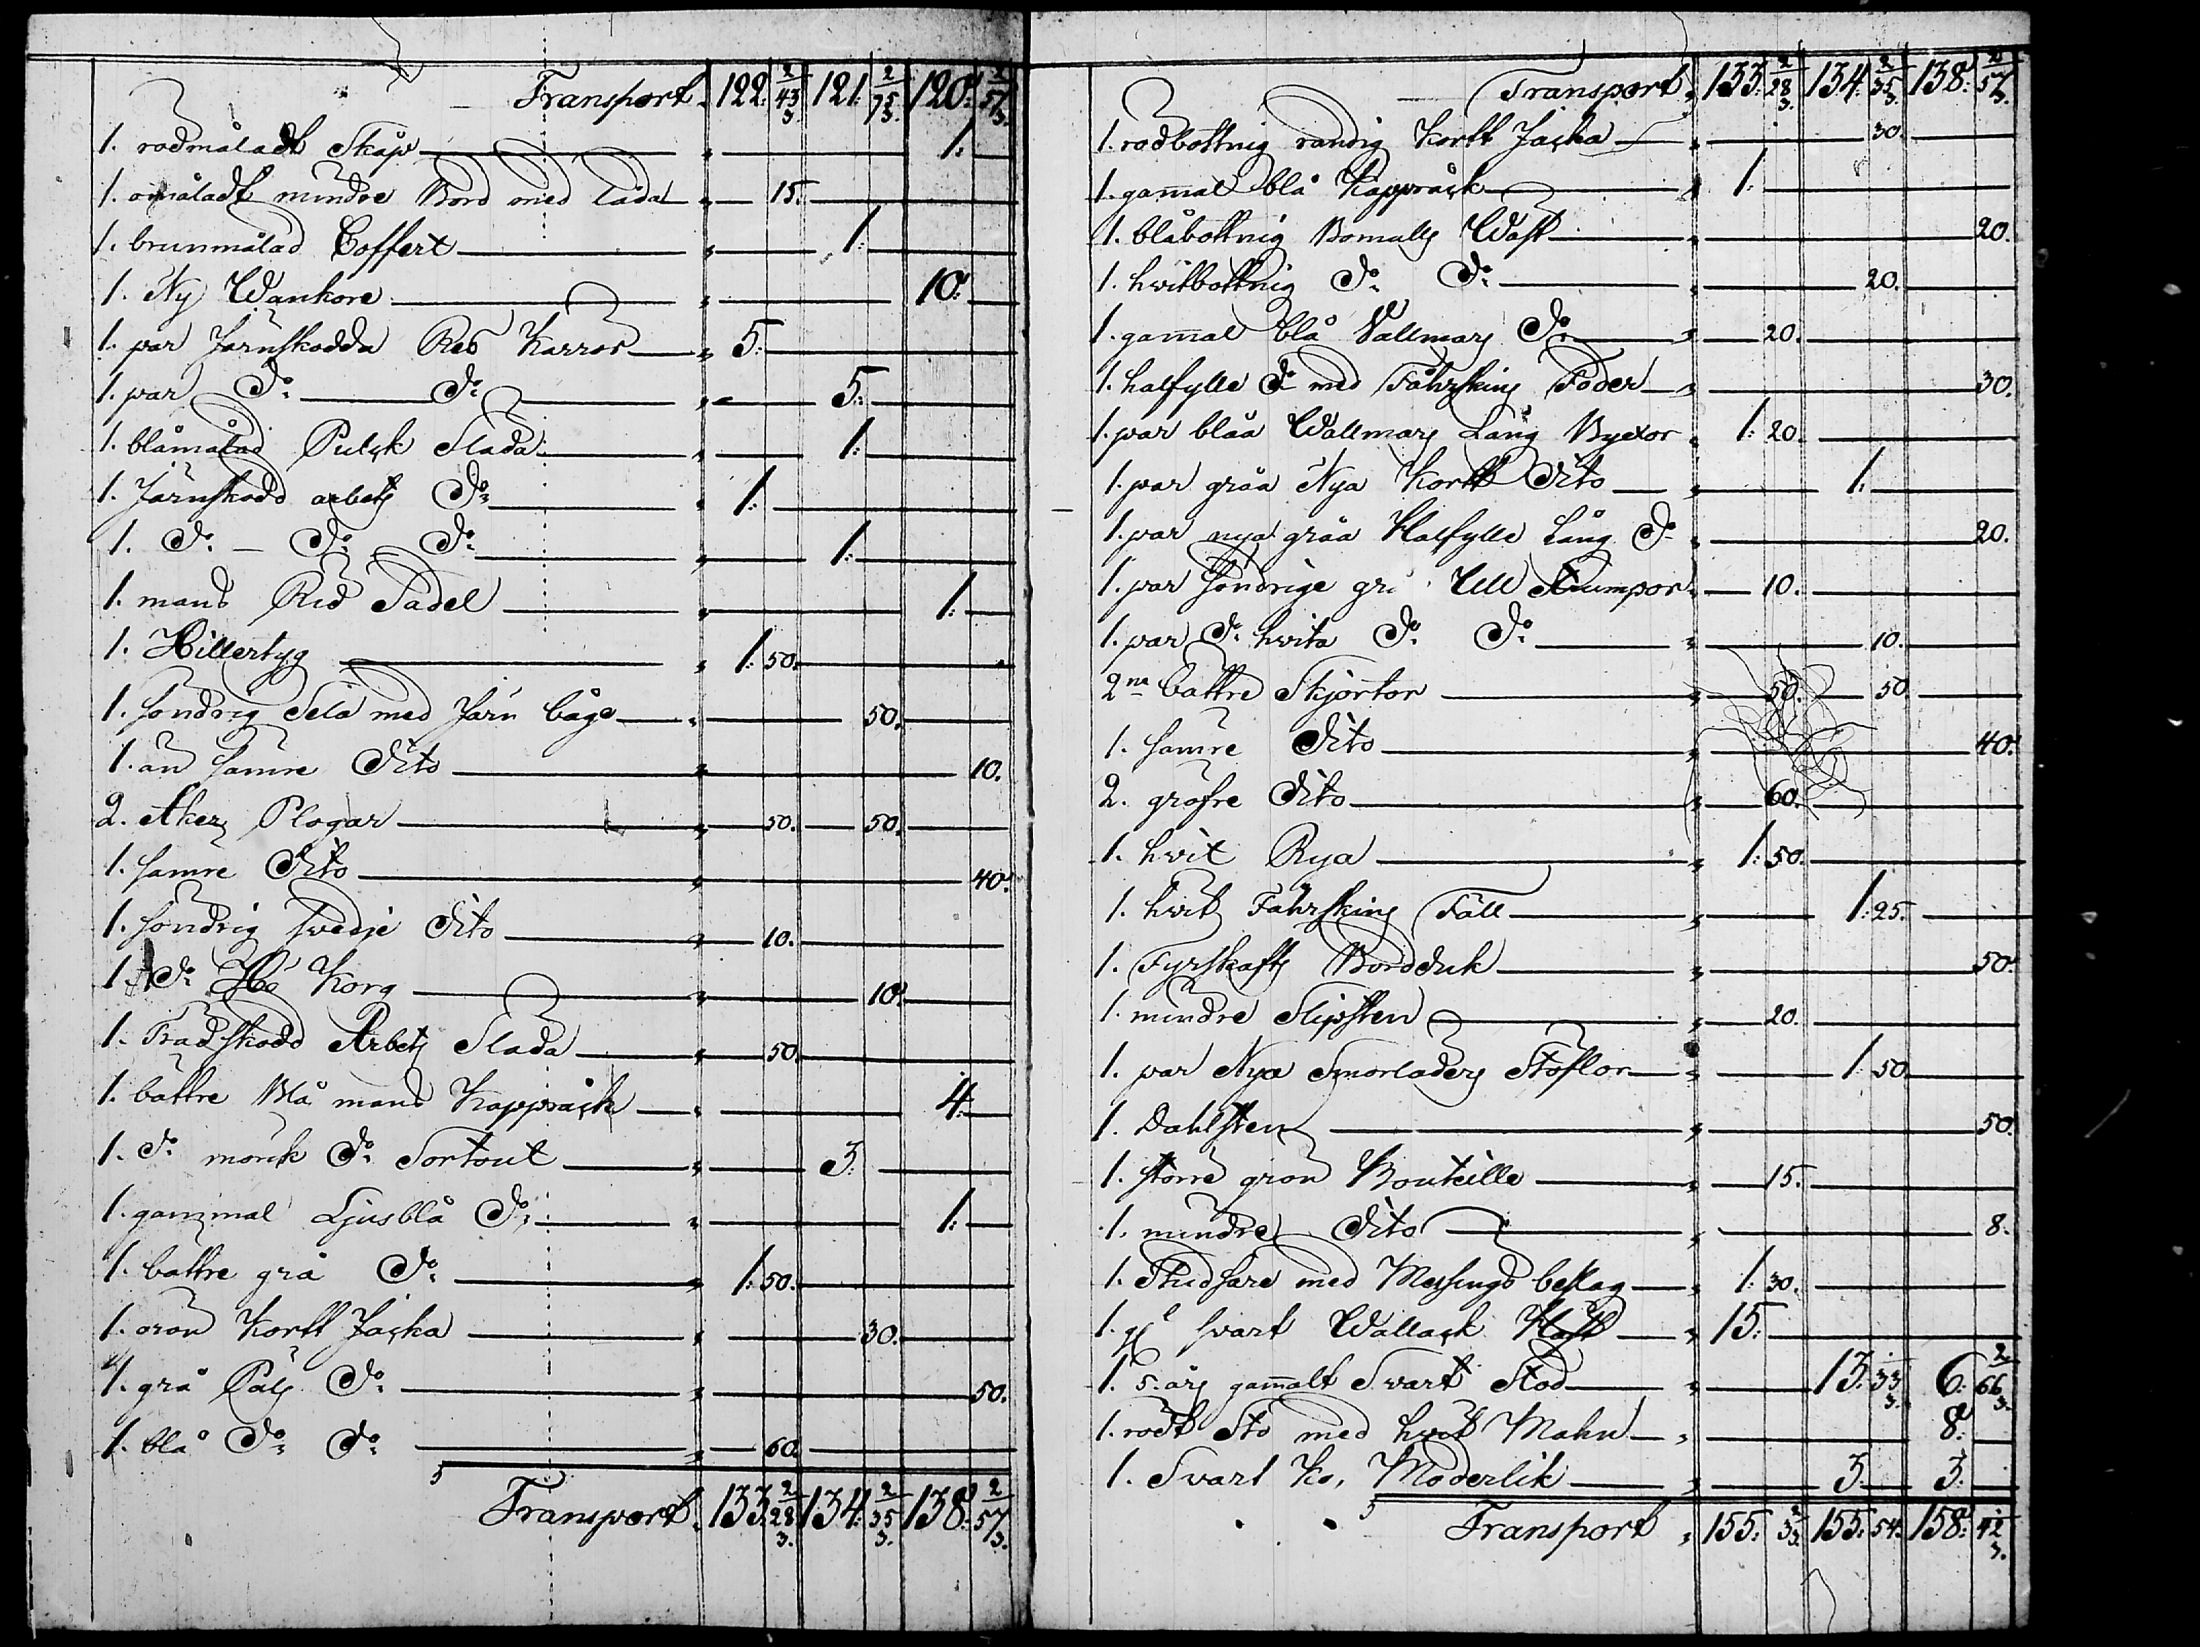 Transport 122: 43 2/3 121: 75 2/3. 120: 57 2/3.
1. rödmåladt Skåp 1:
1. omåladt mindre Bord med låda 15.
1. brunmålad Coffert 1:
1. Ny Wankore 10:
1. par Järnskodda Res Kärror 5:
1. par Do Do 5:
1. blåmålad Pulck Släda 1:
1. Järnskodd arbets Do 1:
1. Do - Do Do 1:
1. mans Rid Sadel 1:
1. Hillertyg 1: 50.
1. söndrig Sela med Järn båge 50.
1. än sämre Dito 10.
2. Åkers Plogar 50. 50.
1. sämre Dito 40.
1. söndrig svedje Dito 10.
1. Do Hö Korg 10.
1. Trädskodd Arbets Släda 50.
1. bättre blå mans Kappråck 4:
1. Do mörk Do Sortout 3:
1. gammal Ljusblå Do 1:
1. bättre grå Do 1: 50.
1. grön Kortt Jacka 30.
1. grå Päls Do 50.
1. blå Do Do 60.
Transport 133: 28 2/3. 134: 35 2/3. 138: 57 2/3.
Transport 133: 28 2/3. 134: 35 2/3. 138: 57 2/3.
1. rödbottnig randig Kortt Jacka 30.
1. gamal blå Kappråck 1:
1. blåbottnig Bomulls Wäst 20.
1. hvitbottnig Do Do 20.
1. gamal blå Vallmars Do 20.
1. halfylle Do med Fåhrskins Foder 30.
1. par blåa Wallmars Lång Byxor 1: 20.
1. par gråa Nya Kortt Dito 1:
1. par nya gråa Halfylle Lång Do 20.
1. par söndrige Ull Strumpor 10.
1. par Do hvita Do Do 10.
2ne bättre Skjortor 50. 50.
1. sämre Dito 40.
2. gröfre Dito 60.
1. hvit Rya 1: 50.
1. hvit Fåhrskins Fäll 1: 25.
1. Fyrskafts Bordduk 50.
1. mindre Slipsten 20.
1. par Nya Smorläders Stöflor 1: 50.
1. Dahlsten 50.
1. större grön Bouteille 15.
1. mindre Dito 8.
1. Studsare med Messings beslag 1: 30.
1. st svart Wallack Häst 15:
1. 5. års gamalt Svart Stod 13: 33 1/3. 6: 66 2/3.
1. rödt Sto med hvit Mahn 8:
1. Svart Ko, Moderlik 3: 3:
Transport 155: 3 2/3. 155: 54. 158: 42 1/3.